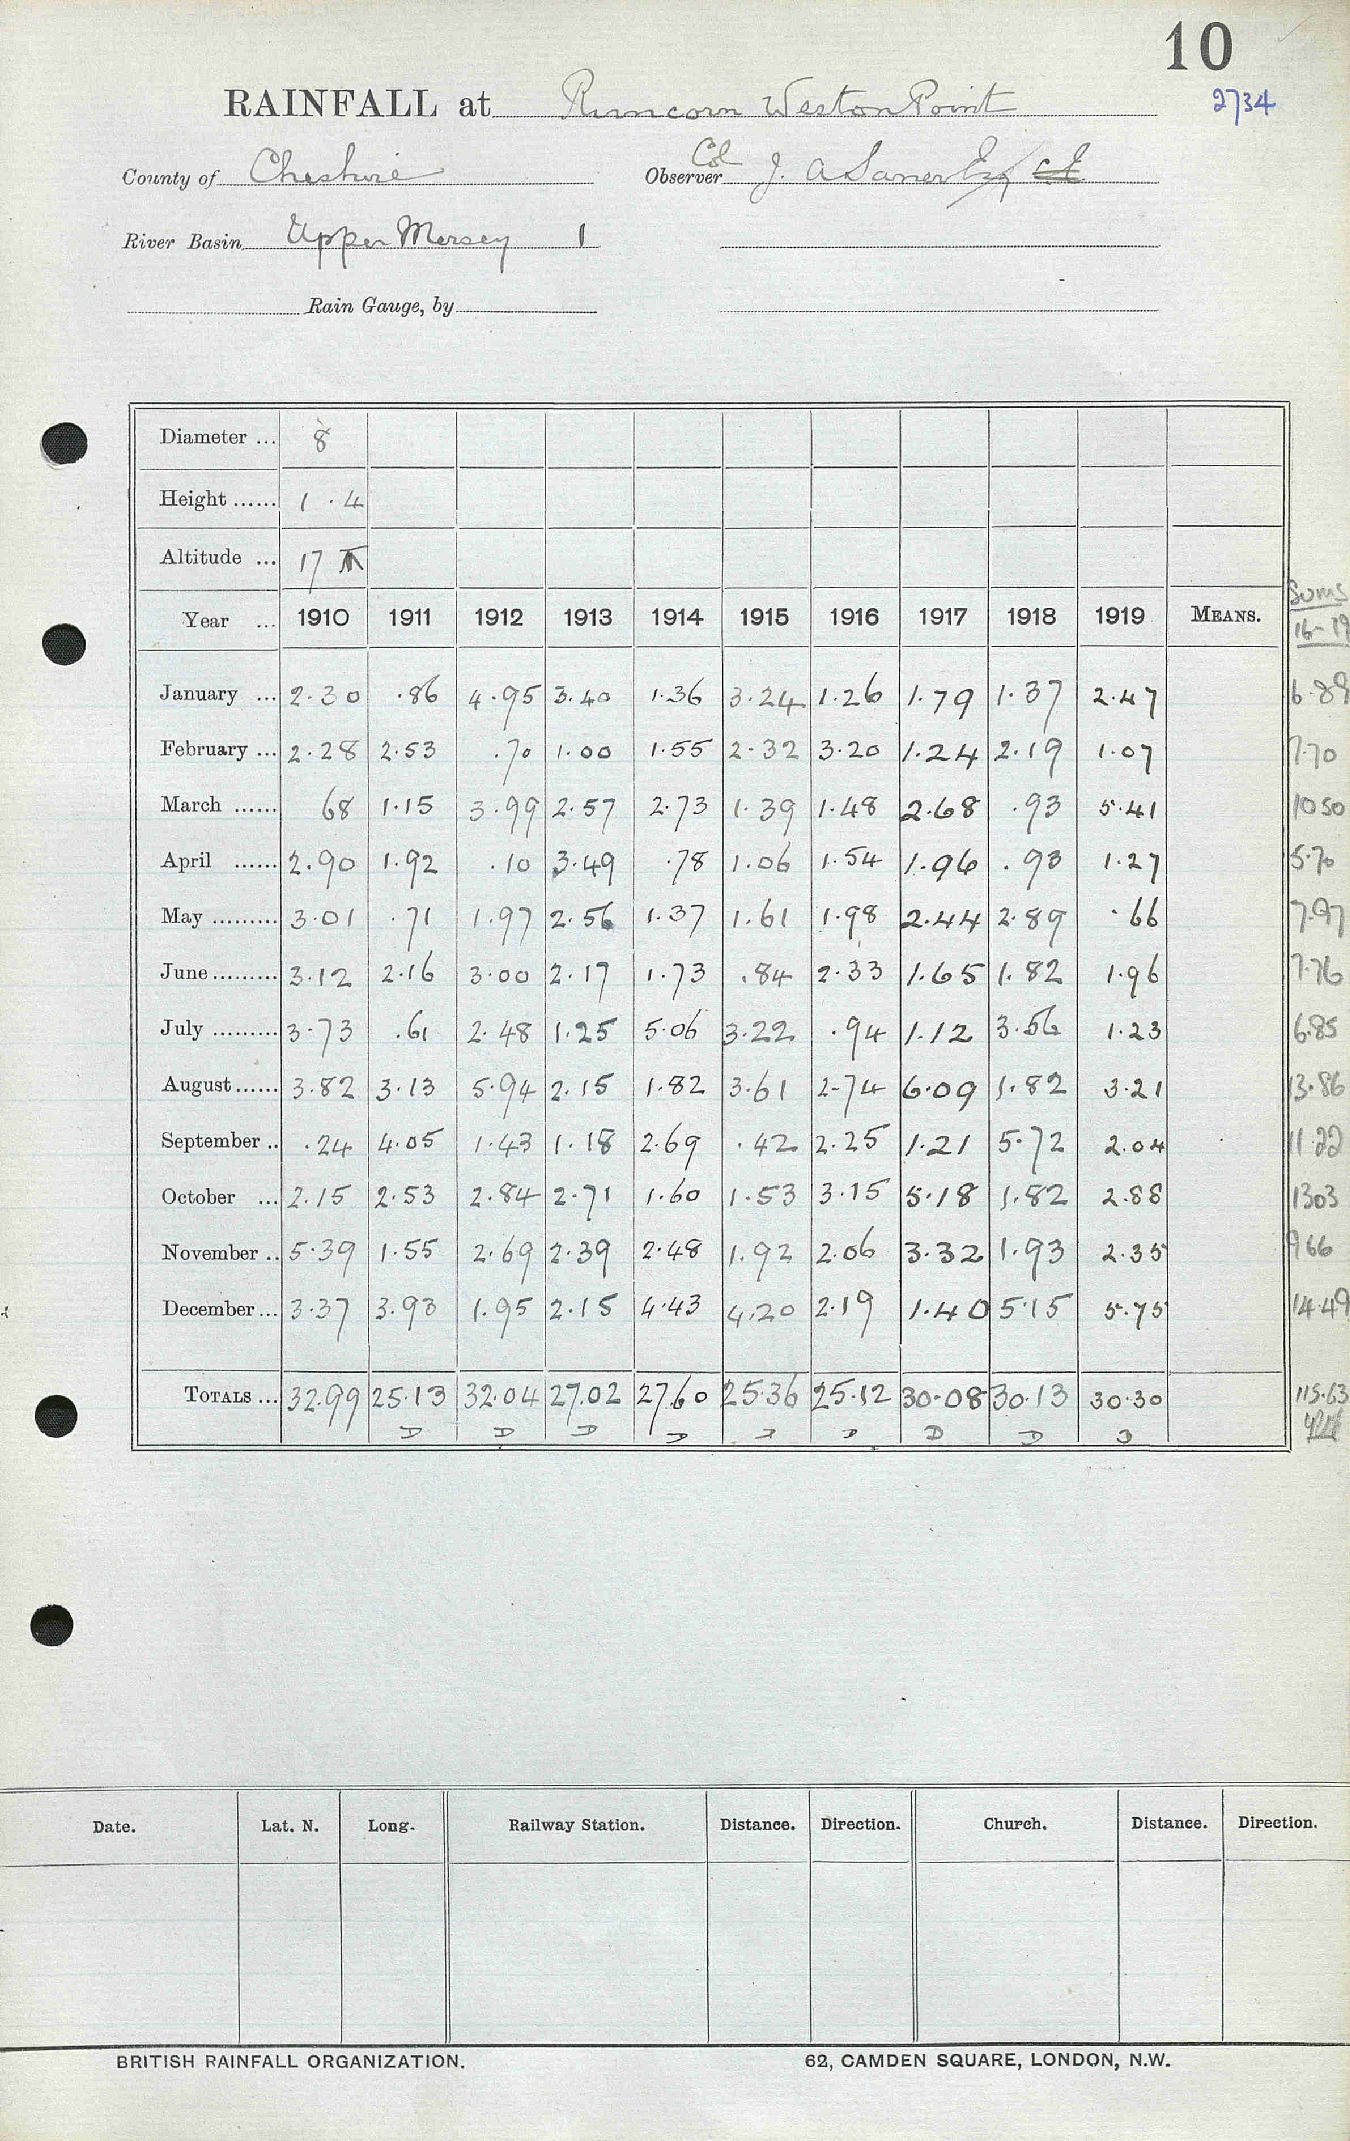 10
RAINFALL at Runcorn Weston Point 2734
County of Cheshire Observer Col J. A Saner Esq CE
River Basin Upper Mersey 1
Rain Gauge, by
Diameter ... 8
Height ...... 1 . 4
Altitude ... 17
Sums
Year ... 1910 1911 1912 1913 1914 1915 1916 1917 1918 1919 MEANS. 16-19
January ... 2.30 .86 4.95 3.40 1.36 3.24 1.26 1.79 1.37 2.47 6.89
February ... 2.28 2.53 .70 1.00 1.55 2.32 3.20 1.24 2.19 1.07 7.70
March ...... 68 1.15 3.99 2.57 2.73 1.39 1.48 2.68 .93 5.41 10 50
April ...... 2.90 1.92 .10 3.49 .78 1.06 1.54 1.96 .93 1.27 5.70
May ......... 3.01 .71 1.97 2.56 1.37 1.61 1.98 2.44 2.89 .66 7.97
June ......... 3.12 2.16 3.00 2.17 1.73 .84 2.33 1.65 1.82 1.96 7.76
July ......... 3.73 .61 2.48 1.25 5.06 3.22 .94 1.12 3.56 1.23 6.85
August ...... 3.82 3.13 5.94 2.15 1.82 3.61 2.74 6.09 1.82 3.21 13.86
September .. .24 4.05 1.43 1.18 2.69 .42 2.25 1.21 5.72 2.04 11.22
October ... 2.15 2.53 2.84 2.71 1.60 1.53 3.15 5.18 1.82 2.88 1303
November .. 5.39 1.55 2.69 2.39 2.48 1.92 2.06 3.32 1.93 2.35 966
December ... 3.37 3.93 1.95 2.15 4.43 4.20 2.19 1.40 5.15 5.75 14.49
TOTALS ... 32.99 25.13 32.04 27.02 27.60 25.36 25.12 30.08 30.13 30.30 115.63
D D D D D D D D D
Date. Lat. N. Long. Railway Station. Distance. Direction. Church. Distance. Direction.
BRITISH RAINFALL ORGANIZATION. 62, CAMDEN SQUARE, LONDON, N.W.